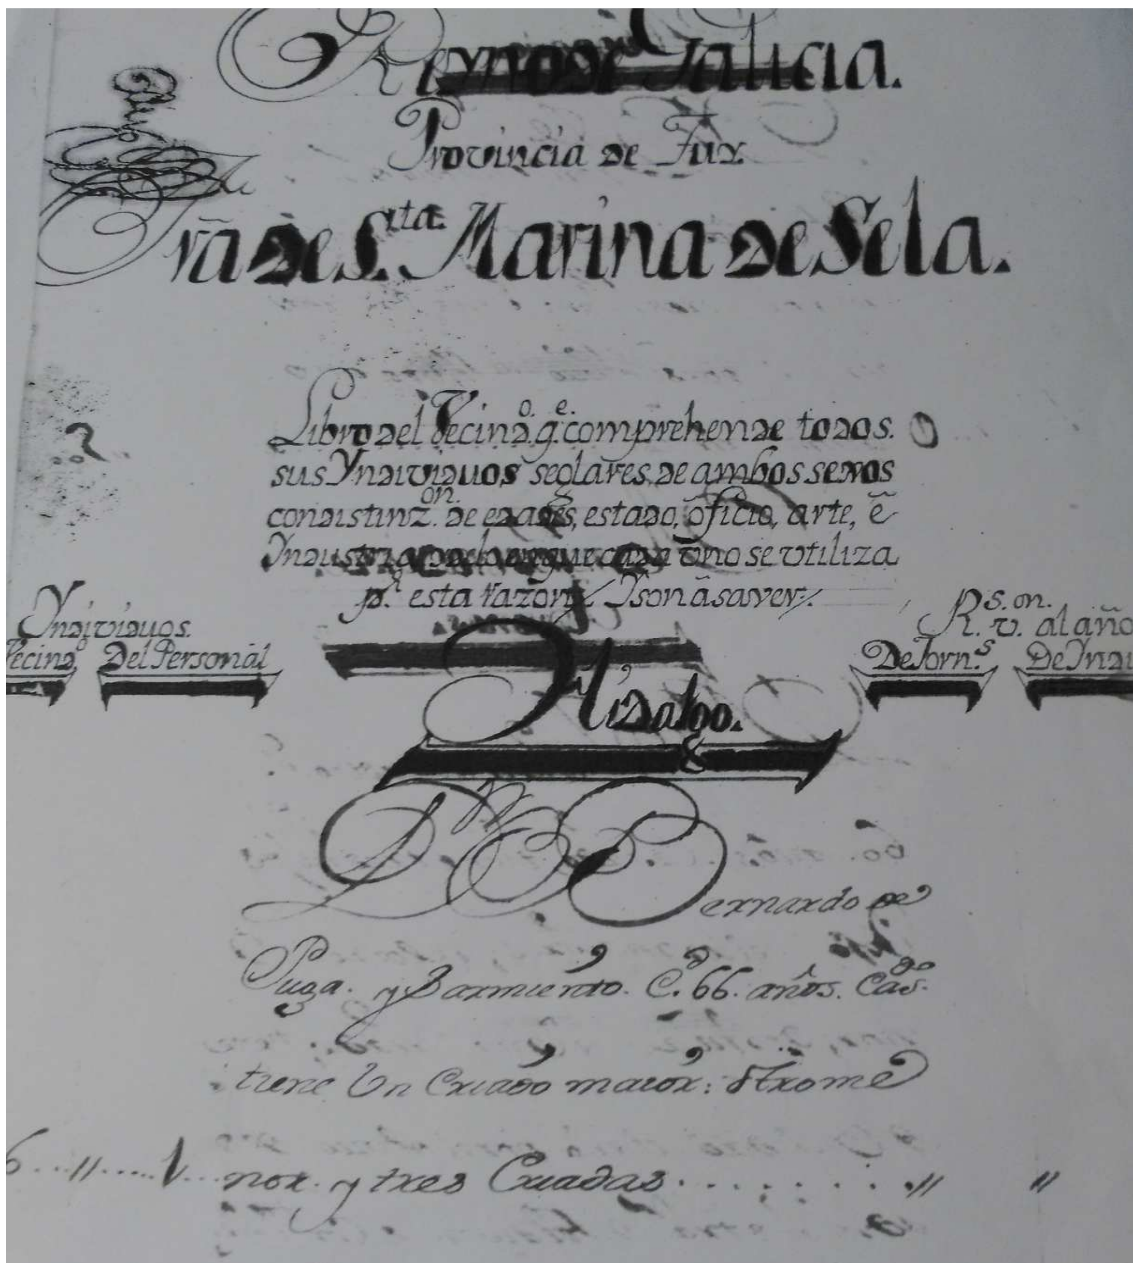 Reyno de Galicia.
Provincia de Tuy.
frã de S.ta Marina de Sela.
Libro del Vecind.o q.e comprehende todos
sus Yndividuos seglares, de ambos sexos
con distinz.on de edades, estado, oficio, arte, ẽ
Yndustria que cada vno se vtiliza
p.r esta razon; Y son â saver;
Yndividuos.
R.s v.on al año
Vecind.o Del Personal
De Jorn.s De Yndu
Hidalgo.
D.n Bernardo de
Puga. y Sarmiento. C.do 66. años. Cas.do
tiene Un Criado maior: Otro me
6...〃.....1...nor. y tres Criadas........〃 〃